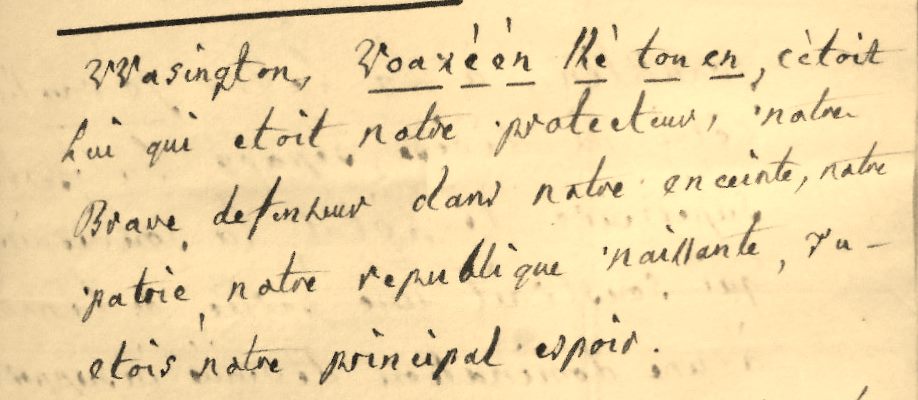 Wasington, Voaxéén Ké ton en, c'étoit
Lui qui etoit notre protecteur, notre
Brave defenseur dans notre enceinte, notre
patrie, notre republique naissante, tu
etois notre principal espoir.